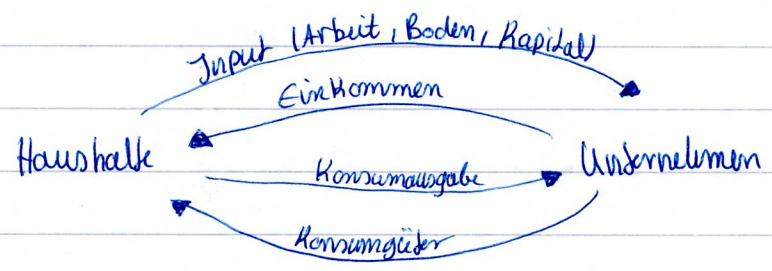 Input (Arbeit, Boden, Kapital)
Einkommen
Haushalte
Unternehmen
Konsumausgabe
Konsumgüter